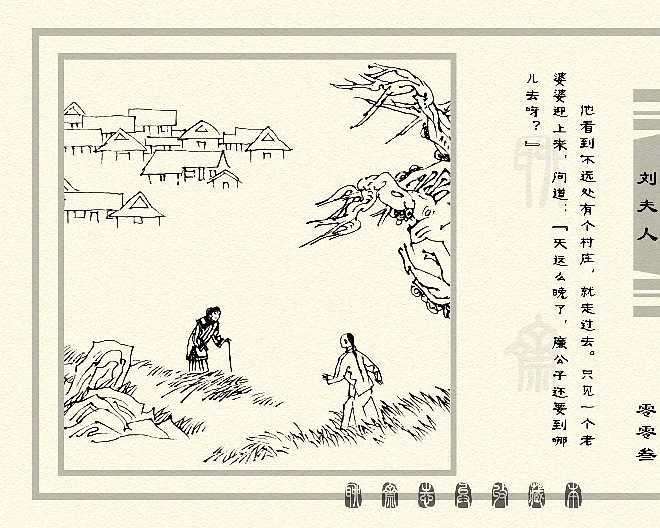 刘夫人
零零叁
他看到不远处有个村庄，就走过去。只见一个老
婆婆迎上来，问道：“天这么晚了，廉公子还要到哪
儿去呀？”
聊斋志异收藏本